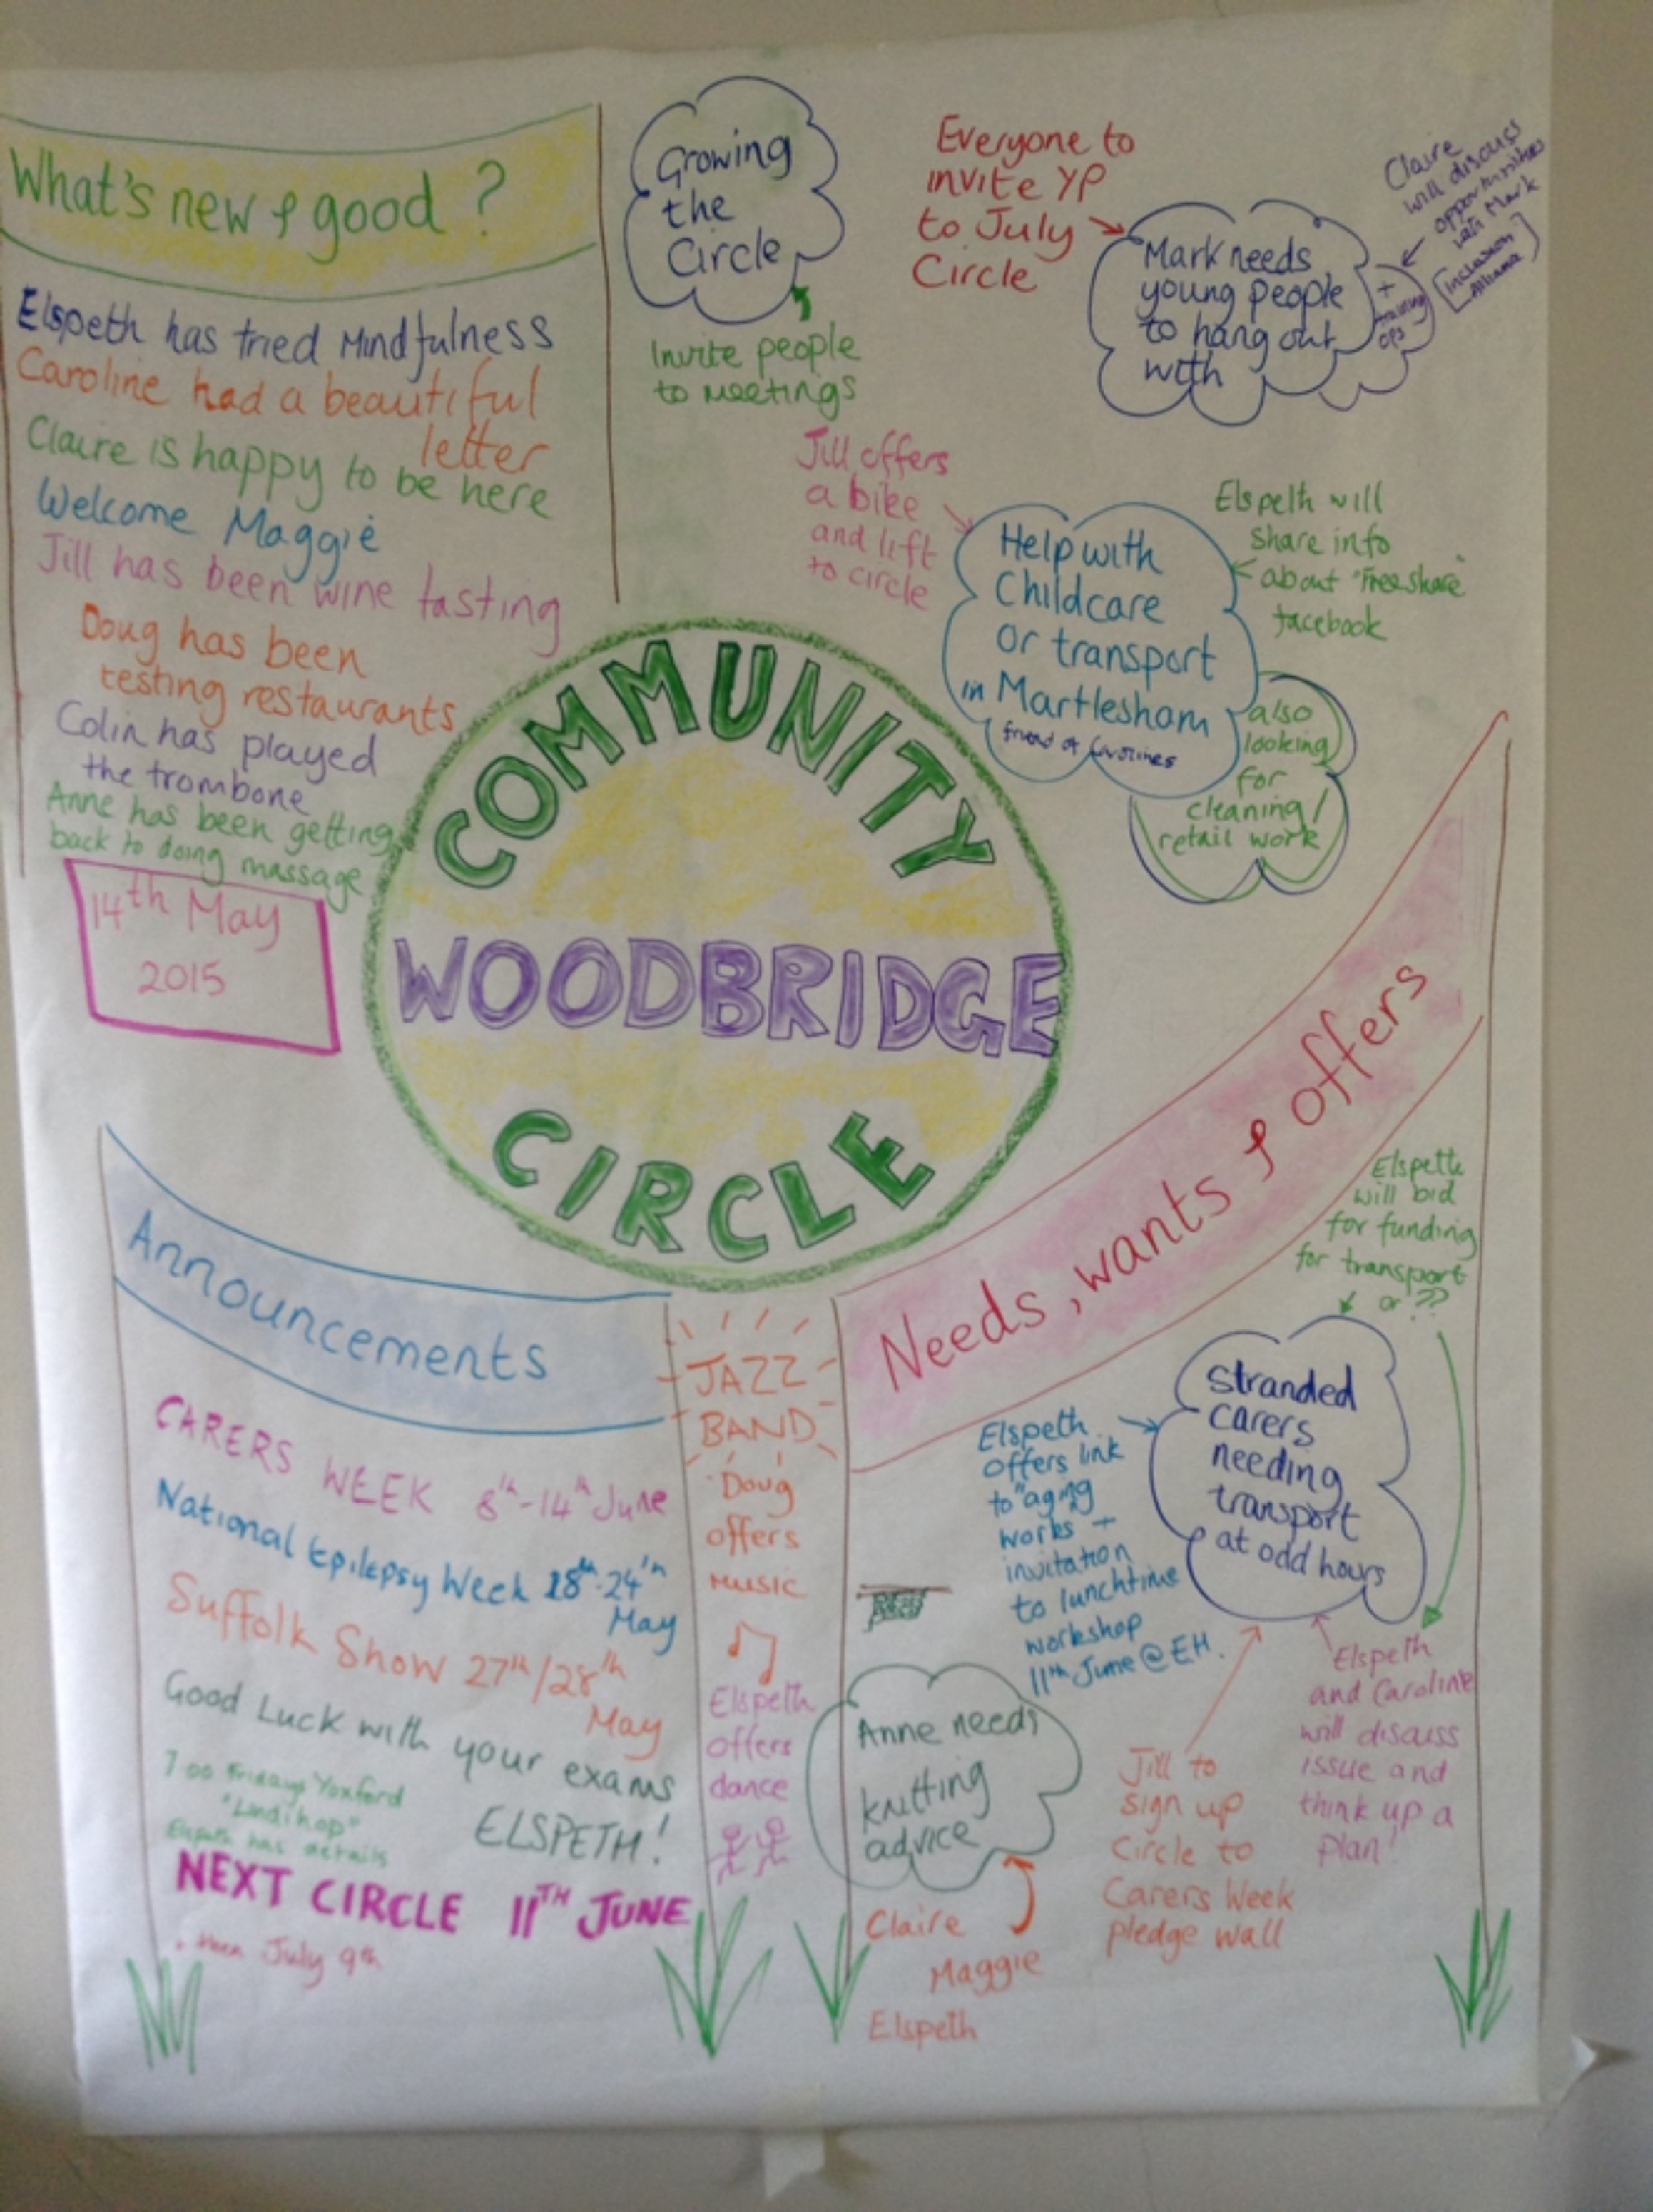 What's new & good?
Elspeth has tried Mindfulness
Caroline had a beautiful
letter
Claire is happy to be here
Welcome Maggie
Jill has been wine tasting
Doug has been
testing restaurants
Colin has played
the trombone
Anne has been getting
back to doing massage
14th May
2015
Growing
the
Circle
Invite people
to meetings
Everyone to
invite YP
to July
Circle
Mark needs
young people
to hang out
with
+
training
ops
Claire
will discuss
opportunities
with Mark
[Inclusion
Alliance]
Jill offers
a bike
and lift
to circle
Help with
Childcare
or transport
in Martlesham
friend of Carolines
Elspeth will
share info
about "Freeshare"
facebook
also
looking
for
cleaning/
retail work
COMMUNITY
WOODBRIDGE
CIRCLE
Announcements
CARERS WEEK 8th-14th June
National Epilepsy Week 18th-24th
May
Suffolk Show 27th/28th
May
Good Luck with your exams
ELSPETH!
7.00 Fridays Yoxford
"Lindihop"
Elspeth has details
NEXT CIRCLE 11TH JUNE
then July 9th
JAZZ
BAND
Doug
offers
music
Elspeth
offers
dance
Needs, wants & offers
Elspeth
will bid
for funding
for transport
or ??
Stranded
carers
needing
transport
at odd hours
Elspeth
offers link
to "aging
works +
invitation
to lunchtime
workshop
11th June @ EH.
Elspeth
and Caroline
will discuss
issue and
think up a
plan!
Jill to
sign up
Circle to
Carers Week
pledge wall
Anne needs
knitting
advice
Claire
Maggie
Elspeth